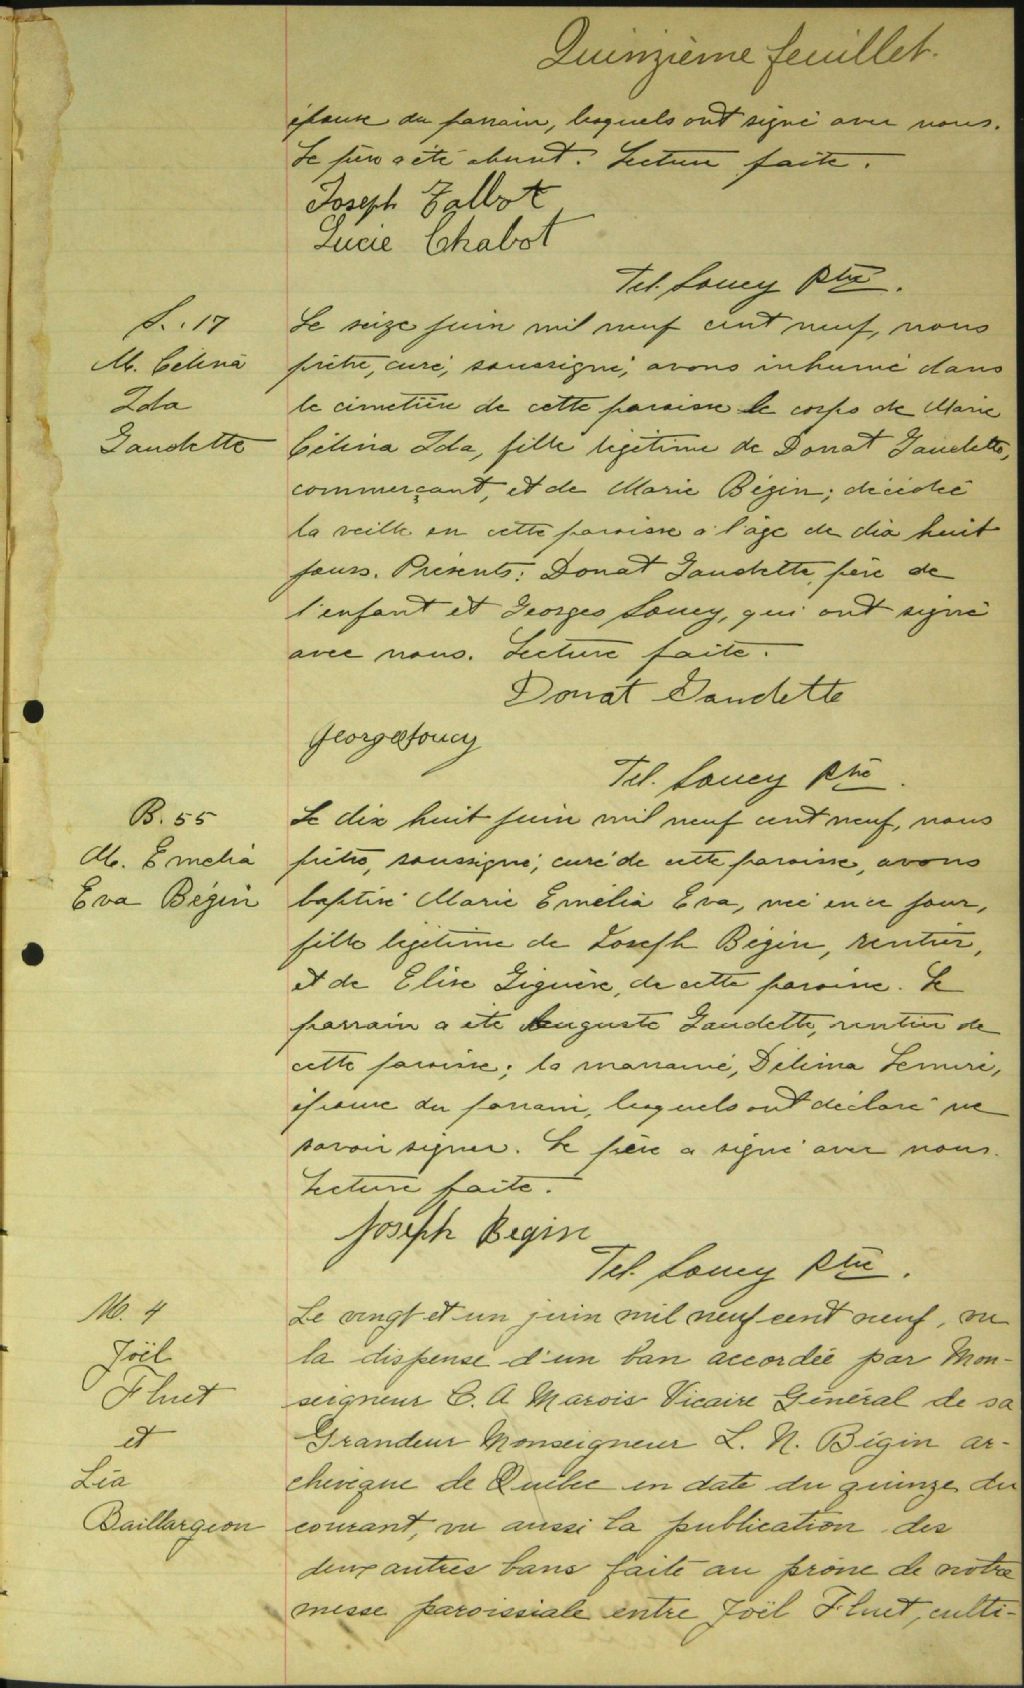 Quinzième feuillet.
épouse du parrain, lesquels ont signé avec nous.
Le père a été absent. Lecture faite.
Joseph Talbot
Lucie Chabot
Tel. Soucy Ptre.
S. 17
M. Célina
Ida
Gaudette
Le seize juin mil neuf cent neuf, nous
prêtre, curé, soussigné, avons inhumé dans
le cimetière de cette paroisse le corps de Marie
Célina Ida, fille légitime de Donat Gaudette,
commerçant, et de Marie Bégin; décédée
la veille en cette paroisse à l'âge de dix huit
jours. Présents: Donat Gaudette, père de
l'enfant et Georges Soucy, qui ont signé
avec nous. Lecture faite.
Donat Gaudette
Georges Soucy
Tel. Soucy Ptre.
B. 55
M. Emélia
Eva Bégin
Le dix huit juin mil neuf cent neuf, nous
prêtre, soussigné, curé de cette paroisse, avons
baptisé Marie Emélia Eva, née en ce jour,
fille légitime de Joseph Bégin, rentier,
et de Elise Giguère, de cette paroisse. Le
parrain a été Auguste Gaudette, rentier de
cette paroisse; la marraine, Délima Lemire,
épouse du parrain, lesquels ont déclaré ne
savoir signer. Le père a signé avec nous.
Lecture faite.
Joseph Begin
Tel. Soucy Ptre.
M. 4
Joël
Fluet
et
Léa
Baillargeon
Le vingt et un juin mil neuf cent neuf, vu
la dispense d'un ban accordée par Mon-
seigneur C. A Marois Vicaire Général de sa
Grandeur Monseigneur L. N. Bégin ar-
chevêque de Québec en date du quinze du
courant, vu aussi la publication des
deux autres bans faite au prône de notre
messe paroissiale entre Joël Fluet, culti-